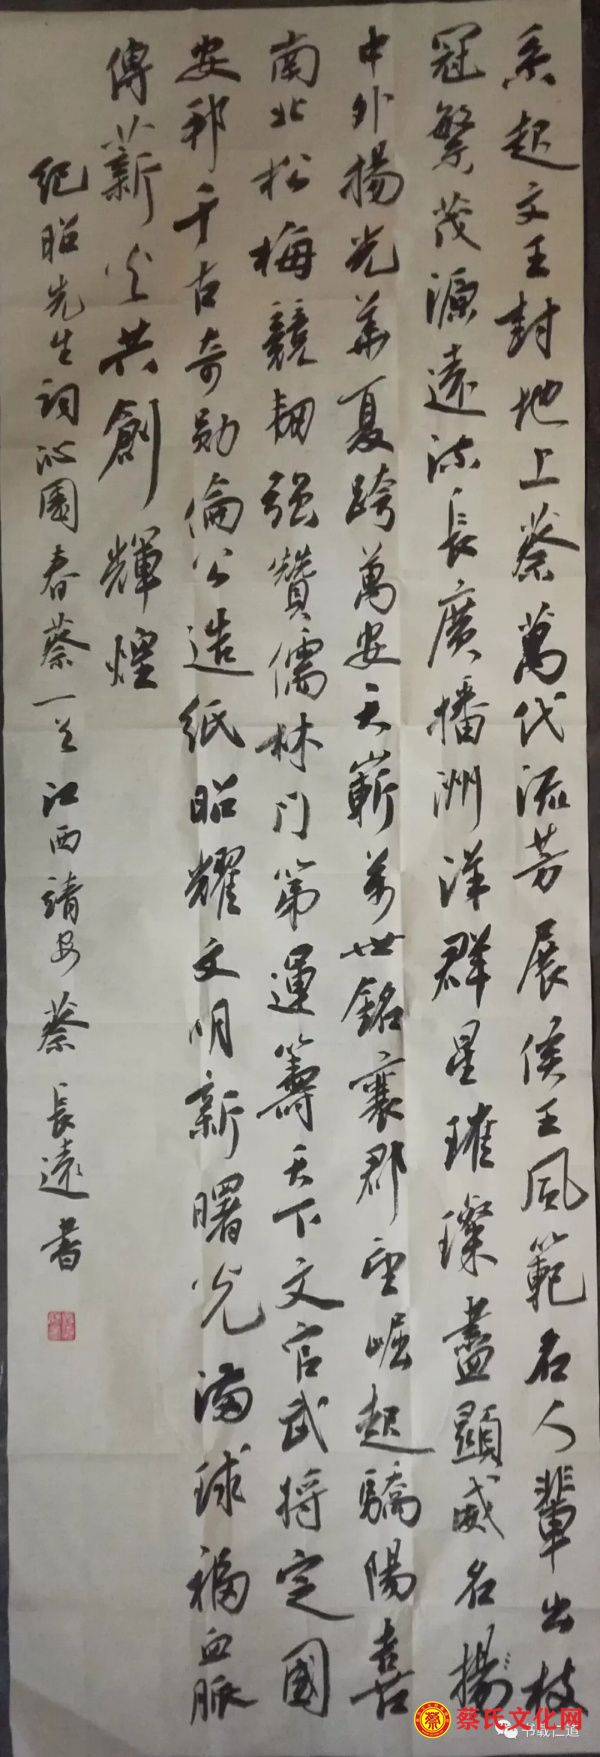 系起文王封地上蔡萬代流芳展侯王風範名人輩出枝
冠繁茂源遠流長廣播洲洋群星璀璨盡顯威名揚
中外揚光華夏跨萬安天嶄萬世銘襄郡望崛起驕陽喜
南北松梅競韌强贊儒林門第運籌天下文官武將定國
安邦千古奇勛倫公造紙昭耀文明新曙光滿球福血脈
傳薪火共創輝煌
紀昭先生詞沁園春蔡一首江西靖安蔡長遠書
蔡氏文化网
书载仁道